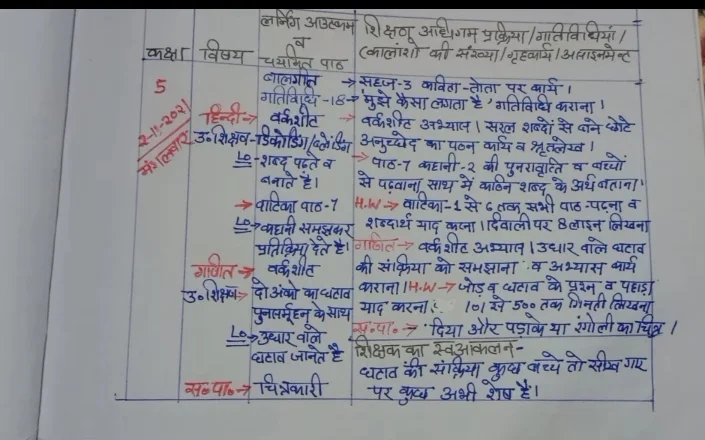 कक्षा
विषय
लर्निंग आउटकम
व
चयनित पाठ
शिक्षण अधिगम प्रक्रिया/गतिविधियां/
(कालांशो की संख्या/गृहकार्य/असाइनमेन्ट
5
2-11-2021
मंगलवार
हिन्दी→
उ.शिक्षण-डिकोडिंग/ब्लेंडिंग
बालगीत
गतिविधि-18→
वर्कशीट
LO→शब्द पढ़ते व
बनाते है।
→वाटिका पाठ-7
LO→कहानी समझकर
प्रतिक्रिया देते है।
गणित→ वर्कशीट
उ.शिक्षण→ दो अंको का घटाव
पुनर्समूहन के साथ
LO→उधार वाले
घटाव जानते है
स०पा०→ चित्रकारी
→सहज-3 कविता-तोता पर कार्य।
'मुझे कैसा लगता है' गतिविधि कराना।
→ वर्कशीट अभ्यास। सरल शब्दों से बने छोटे
अनुच्छेद का पठन कार्य व श्रुतलेख।
→पाठ-7 कहानी-2 की पुनरावृति व बच्चों
से पढ़वाना साथ में कठिन शब्द के अर्थ बताना।
H.W→वाटिका-1 से 6 तक सभी पाठ-पढ़ना व
शब्दार्थ याद करना। दिवाली पर 8 लाइन लिखना
गणित→ वर्कशीट अभ्यास। उधार वाले घटाव
की संक्रिया को समझाना व अभ्यास कार्य
कराना। H.W→ जोड़ व घटाव के प्रश्न व पहाड़ा
याद करना। 101 से 500 तक गिनती लिखना
स०पा०→ दिया और पटाके या रंगोली का चित्र।
शिक्षक का स्वआकलन-
घटाव की संक्रिया कुछ बच्चे तो सीख गए
पर कुछ अभी शेष है।